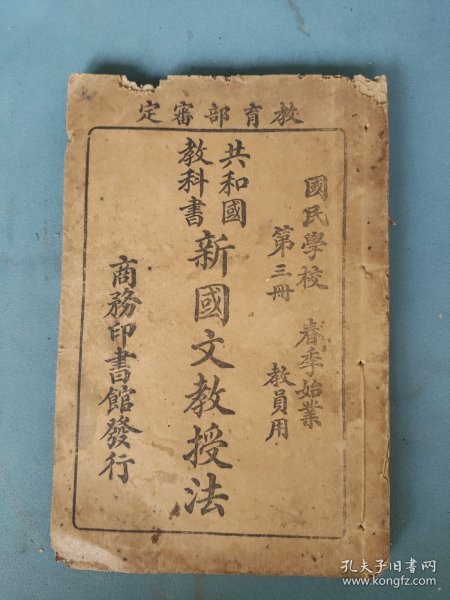 教育部審定
國民學校 春季始業
第三冊 教員用
共和國
教科書
新國文教授法
商務印書館發行
孔夫子旧书网
www.kongfz.com